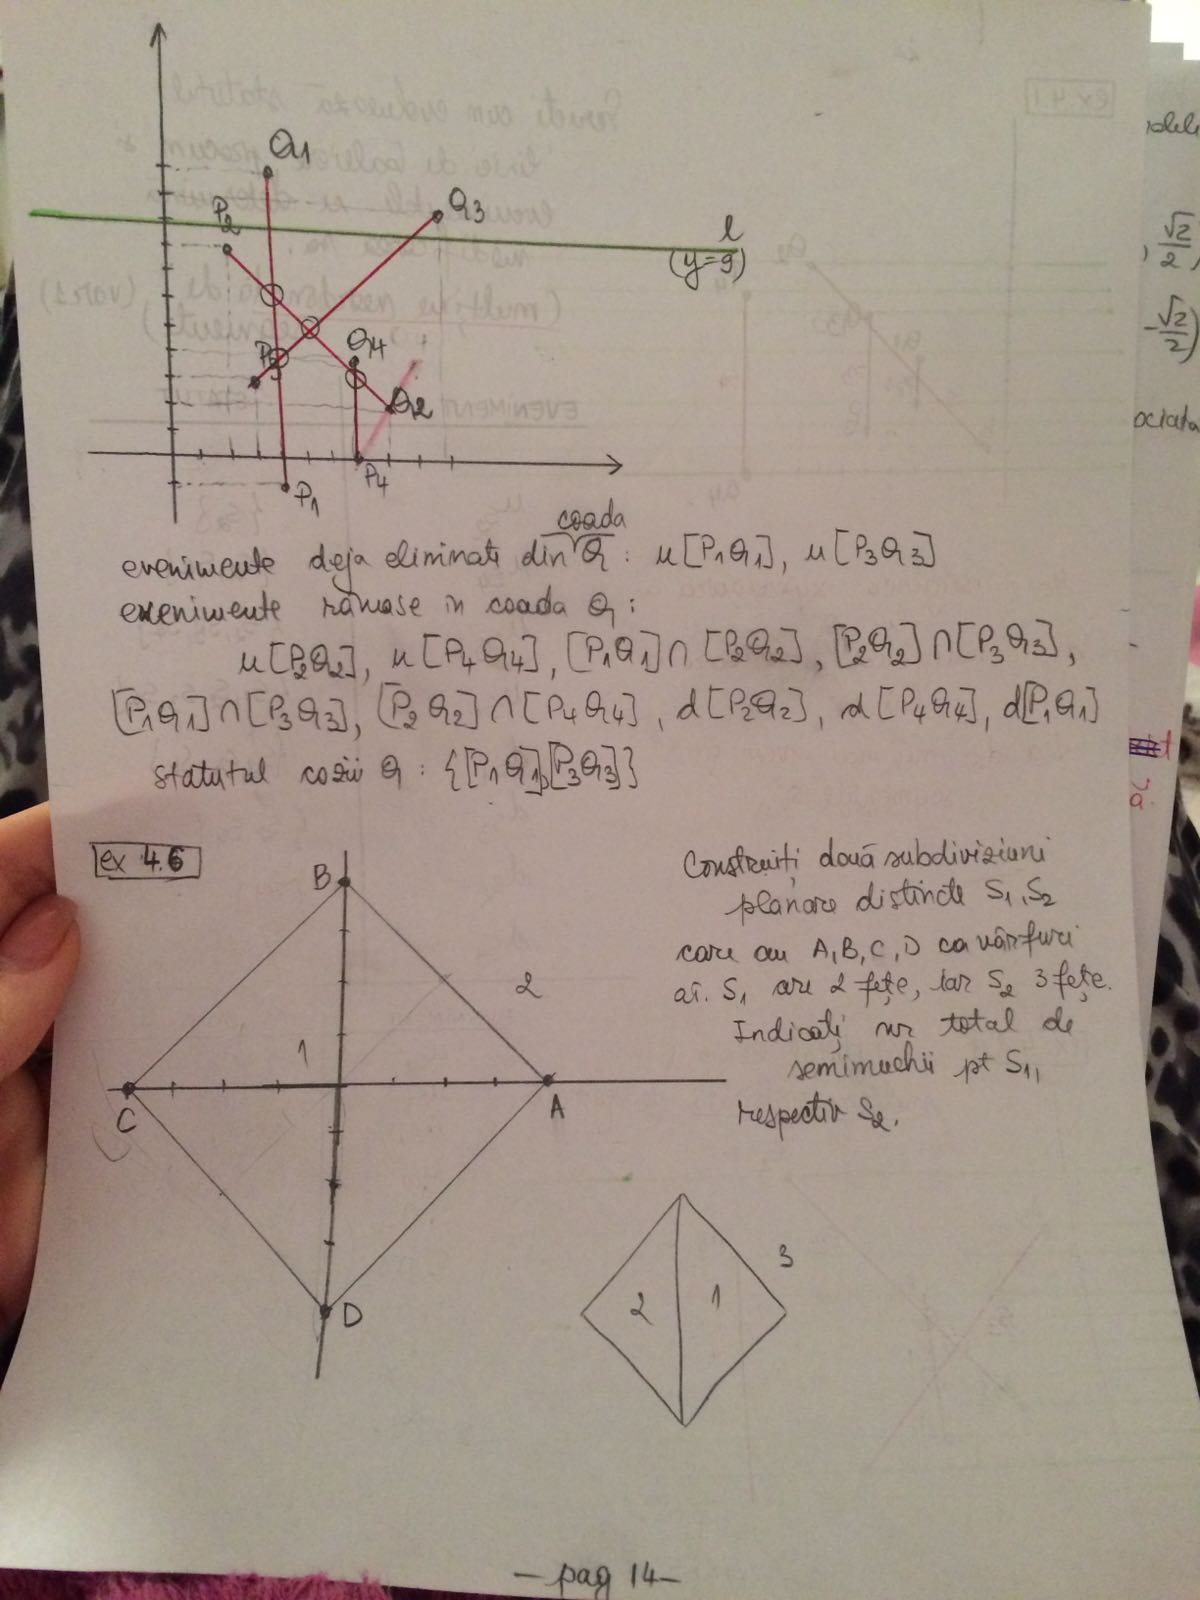 Q1
Q3
P2
l
(y=9)
P3
Q4
Q2
P4
P1
coada
evenimente deja eliminate din Q : u[P1Q1], u[P3Q3]
evenimente rămase în coada Q :
u[P2Q2], u[P4Q4], [P1Q1]∩[P2Q2], [P2Q2]∩[P3Q3],
[P1Q1]∩[P3Q3], [P2Q2]∩[P4Q4], d[P2Q2], d[P4Q4], d[P1Q1]
statutul cozii Q : {[P1Q1],[P3Q3]}
ex 4.6
B
2
1
C
A
D
Construiți două subdiviziuni
planare distincte S1, S2
care au A,B,C,D ca vârfuri
aî. S1 are 2 fețe, iar S2 3 fețe.
Indicați nr total de
semimuchii pt S1,
respectiv S2.
3
2
1
- pag 14 -
√2
2
-√2
2
ociata